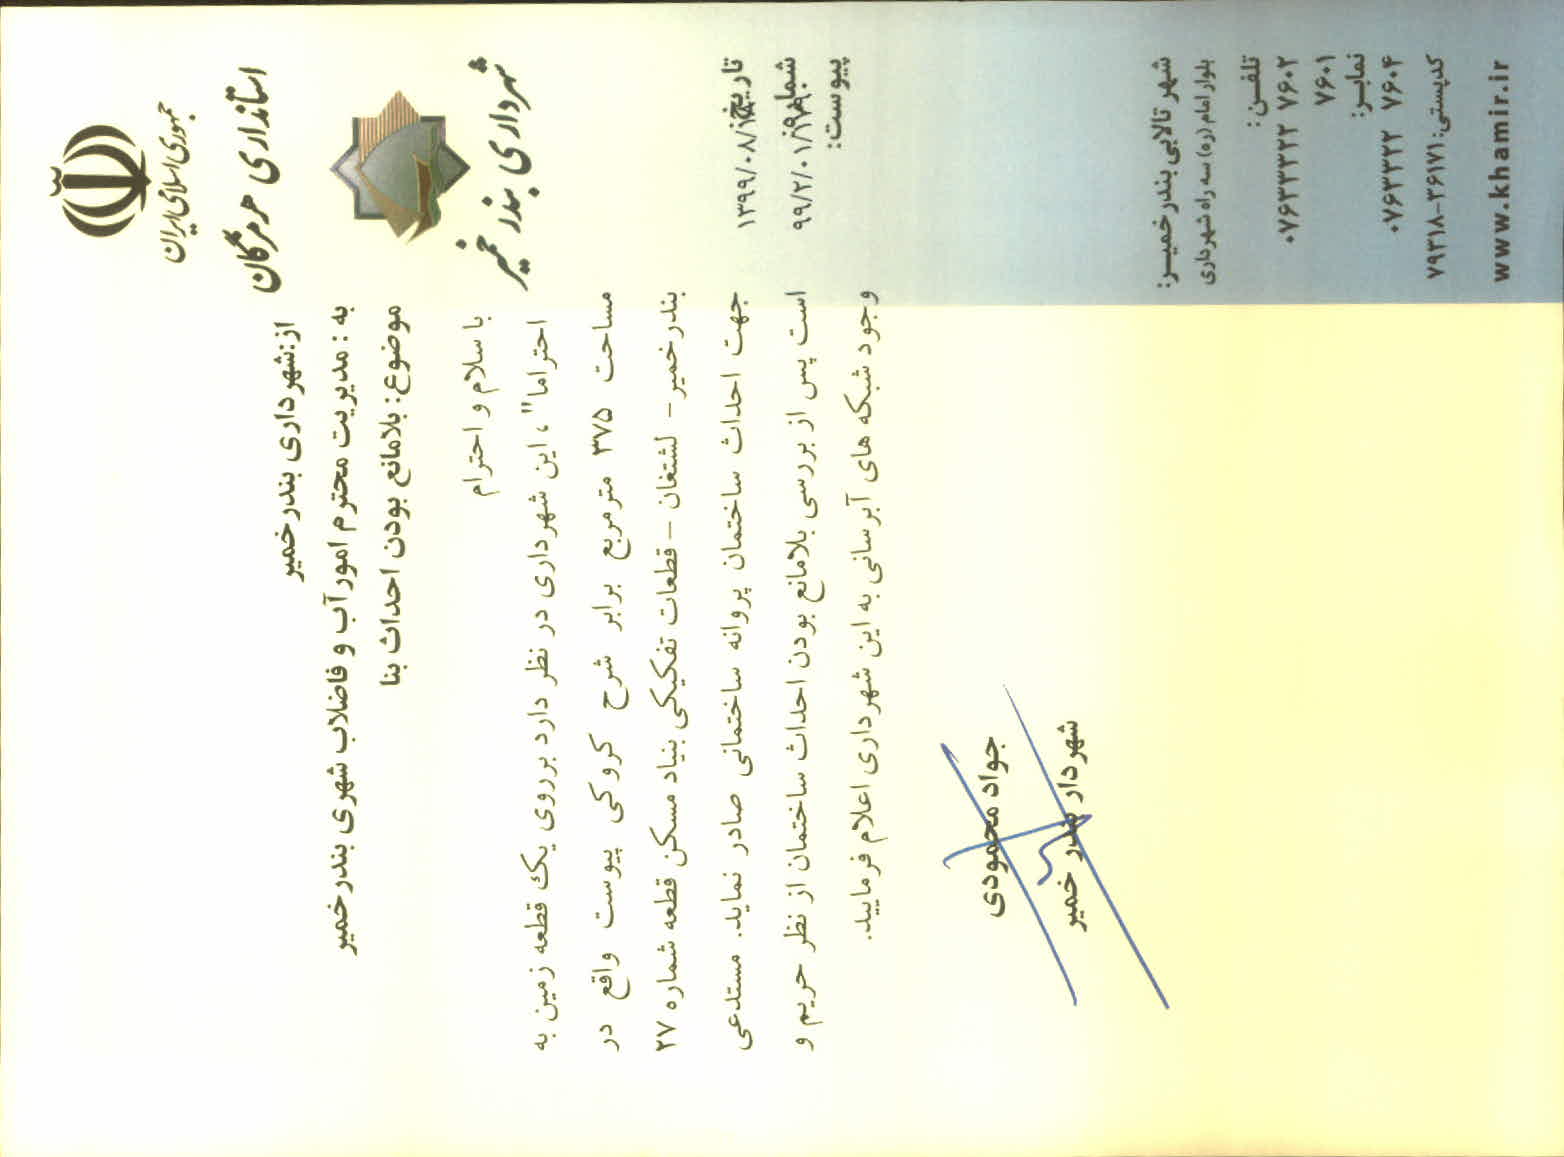 جمهوری اسلامی ایران
استانداری هرمزگان
شهرداری بندر خمیر
تاریخ:
شماره:
پیوست:
از:شهرداری بندرخمیر
به : مدیریت محترم امور آب و فاضلاب شهری بندرخمیر
موضوع: بلامانع بودن احداث بنا
با سلام و احترام
احتراما" ، این شهرداری در نظر دارد برروی یک قطعه زمین به
مساحت ۳۷۵ مترمربع برابر شرح کروکی پیوست واقع در
بندرخمیر- لشتغان -قطعات تفکیکی بنیاد مسکن قطعه شماره ۲۷
جهت احداث ساختمان پروانه ساختمانی صادر نماید. مستدعی
است پس از بررسی بلامانع بودن احداث ساختمان از نظر حریم و
وجود شبکه های آبرسانی به این شهرداری اعلام فرمایید.
جواد محمودی
شهردار بندر خمیر
شهر تالابی بندرخمیـر:
بلوار امام (ره) سه راه شهرداری
تلفـن :
۰۷۶۳۳۳۲۲ ۷۶۰۲
۷۶۰۱
نمابـر:
۰۷۶۳۳۲۲ ۷۶۰۴
کدپستی: ۳۶۱۷۱-۷۹۳۱۸
www.khamir.ir